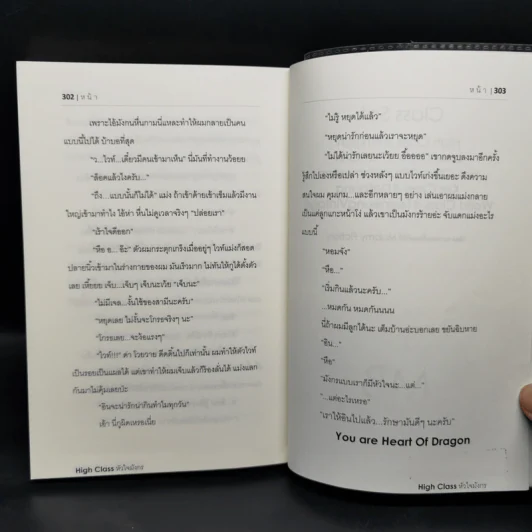 302 | หน้า
เพราะไอ้มังกรหื่นกามนี่แหละทำให้ผมกลายเป็นคน
แบบนี้ไปได้ บ้าบอที่สุด
"ว...ไวท์...เดี๋ยวมีคนเข้ามาเห็น" นี่มันที่ทำงานว้อยย
"ล็อคแล้วไงครับ..."
"ถึง...แบบนั้นก็ไม่ได้" แม่ง ถ้าเช้าด้ายเช้าเข้มแล้วมีงาน
ใหญ่เข้ามาทำไง ไอ้ห่า หื่นไม่ดูเวลาจริงๆ "ปล่อยเรา"
"เร้าใจดีออก"
"หือ อ... อ๊ะ" ตัวผมกระตุกเกร็งเมื่ออยู่ๆ ไวท์แม่งก็สอด
ปลายนิ้วเข้ามาในร่างกายของผม มันเร็วมาก ไม่ทันให้กูได้ตั้งตัว
เลย เหี้ยออ เจ็บ...เจ็บๆ เจ็บนะเว้ย "เจ็บนะ"
"ไม่มีเจล...งั้นใช้ของสามีนะครับ"
"หยุดเลย ไม่งั้นจะโกรธจริงๆ นะ"
"โกรธเลย...จะง้อแรงๆ"
"ไวท์!!!" ด่า โวยวาย ดีดดิ้นไปก็เท่านั้น ผมทำให้ตัวไวท์
เป็นรอยเป็นแผลได้ แต่เขาทำให้ผมเจ็บแล้วก็ร้องลั่นได้ แม่งแลก
กันมาไม่คุ้มเลยป่ะ
"อินจะน่ารักน่ากินทำไมทุกวัน"
เอ้า นี่กูผิดเหรอเนี่ย
High Class หัวใจมังกร
หน้า | 303
"ไม่รู้ หยุดได้แล้ว"
"หยุดน่ารักก่อนแล้วเราจะหยุด"
"ไม่ได้น่ารักเลยนะเว้ยย อื้ออออ" เขากดจูบลงมาอีกครั้ง
รู้สึกไปเองหรือเปล่า ช่วงหลังๆ แบบไวท์เก่งขึ้นเยอะ ดึงความ
สนใจผม คุมเกม...และอีกหลายๆ อย่าง เล่นเอาผมแม่งกลาย
เป็นแค่ลูกแกะหน้าโง่ แล้วเขาเป็นมังกรร้ายอ่ะ จับแดกแม่งอะไร
แบบนี้
"หอมจัง"
"หือ..."
"เริ่มกินแล้วนะครับ..."
...หมดกัน หมดกันนนน
นี่ถ้าผมมีลูกได้นะ เต็มบ้านอ่ะบอกเลย ขยันฉิบหาย
"อิน..."
"หือ"
"มังกรแบบเราก็มีหัวใจนะ...แต่..."
"...แต่อะไรเหรอ"
"เราให้อินไปแล้ว...รักษามันดีๆ นะครับ"
You are Heart Of Dragon
High Class หัวใจมังกร